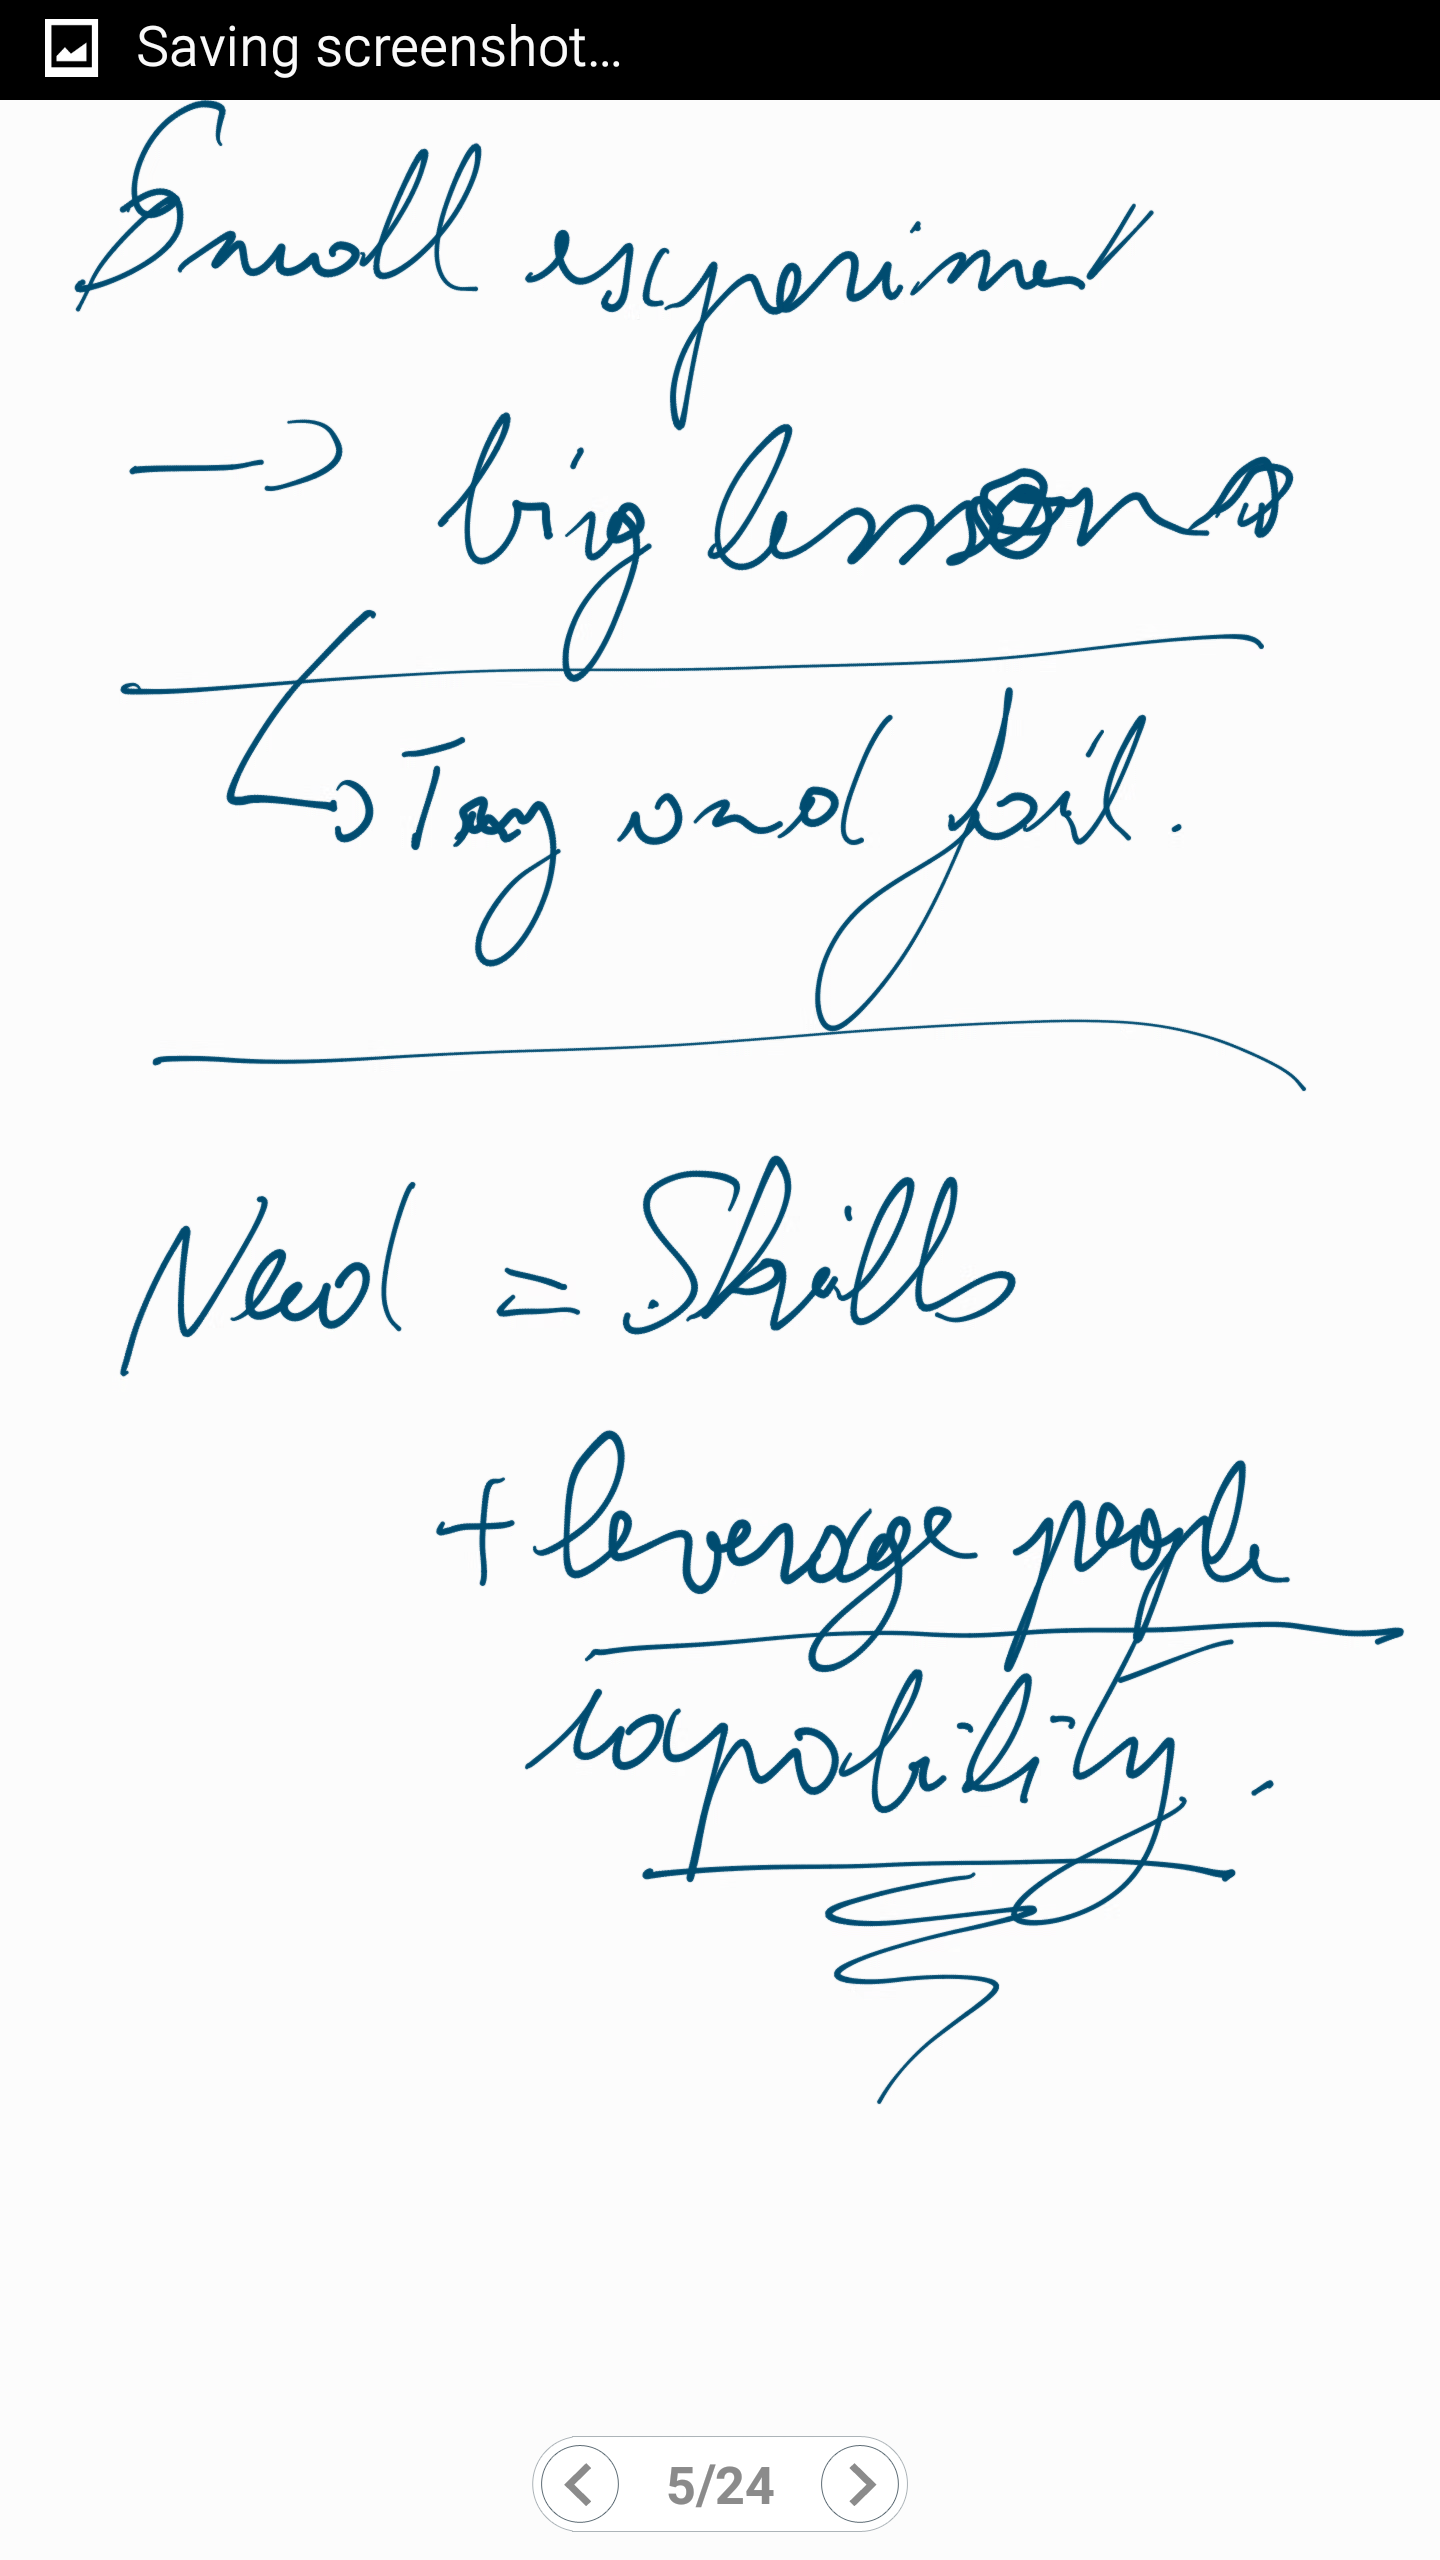 Saving screenshot...
Small experiment
→ big lessons
↳ Try and fail.
Need = Skills
+ leverage people
capability.
5/24